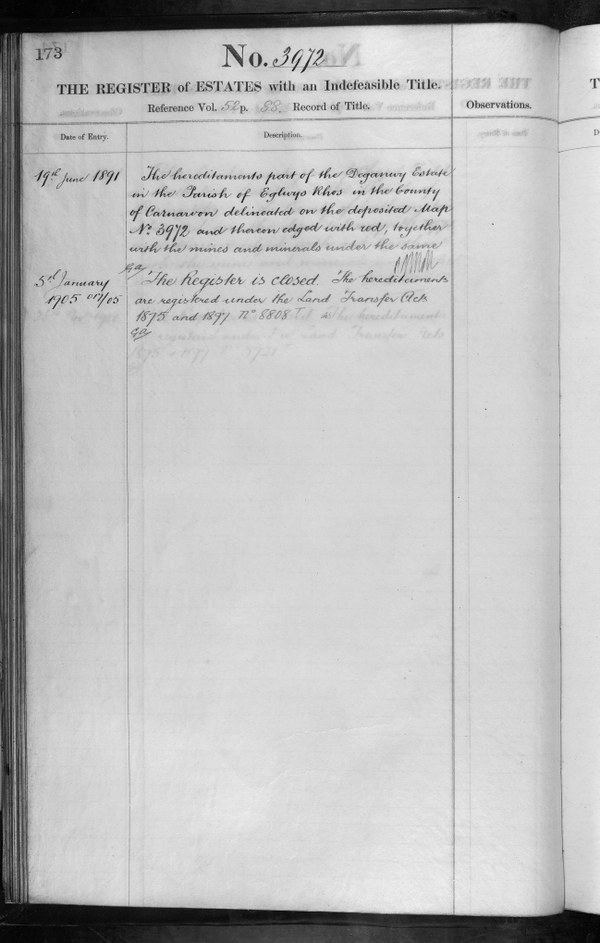 173
No. 3972
THE REGISTER of ESTATES with an Indefeasible Title.
Reference Vol. 52 p. 88. Record of Title.
Observations.
Date of Entry.
Description.
19th June 1891
The hereditaments part of the Deganwy Estate
in the Parish of Eglwys Rhos in the County
of Carnarvon delineated on the deposited Map
No. 3972 and thereon edged with red, together
with the mines and minerals under the same
5th January
1905
The Register is closed. The hereditaments
are registered under the Land Transfer Acts
1875 and 1897 No. 8808